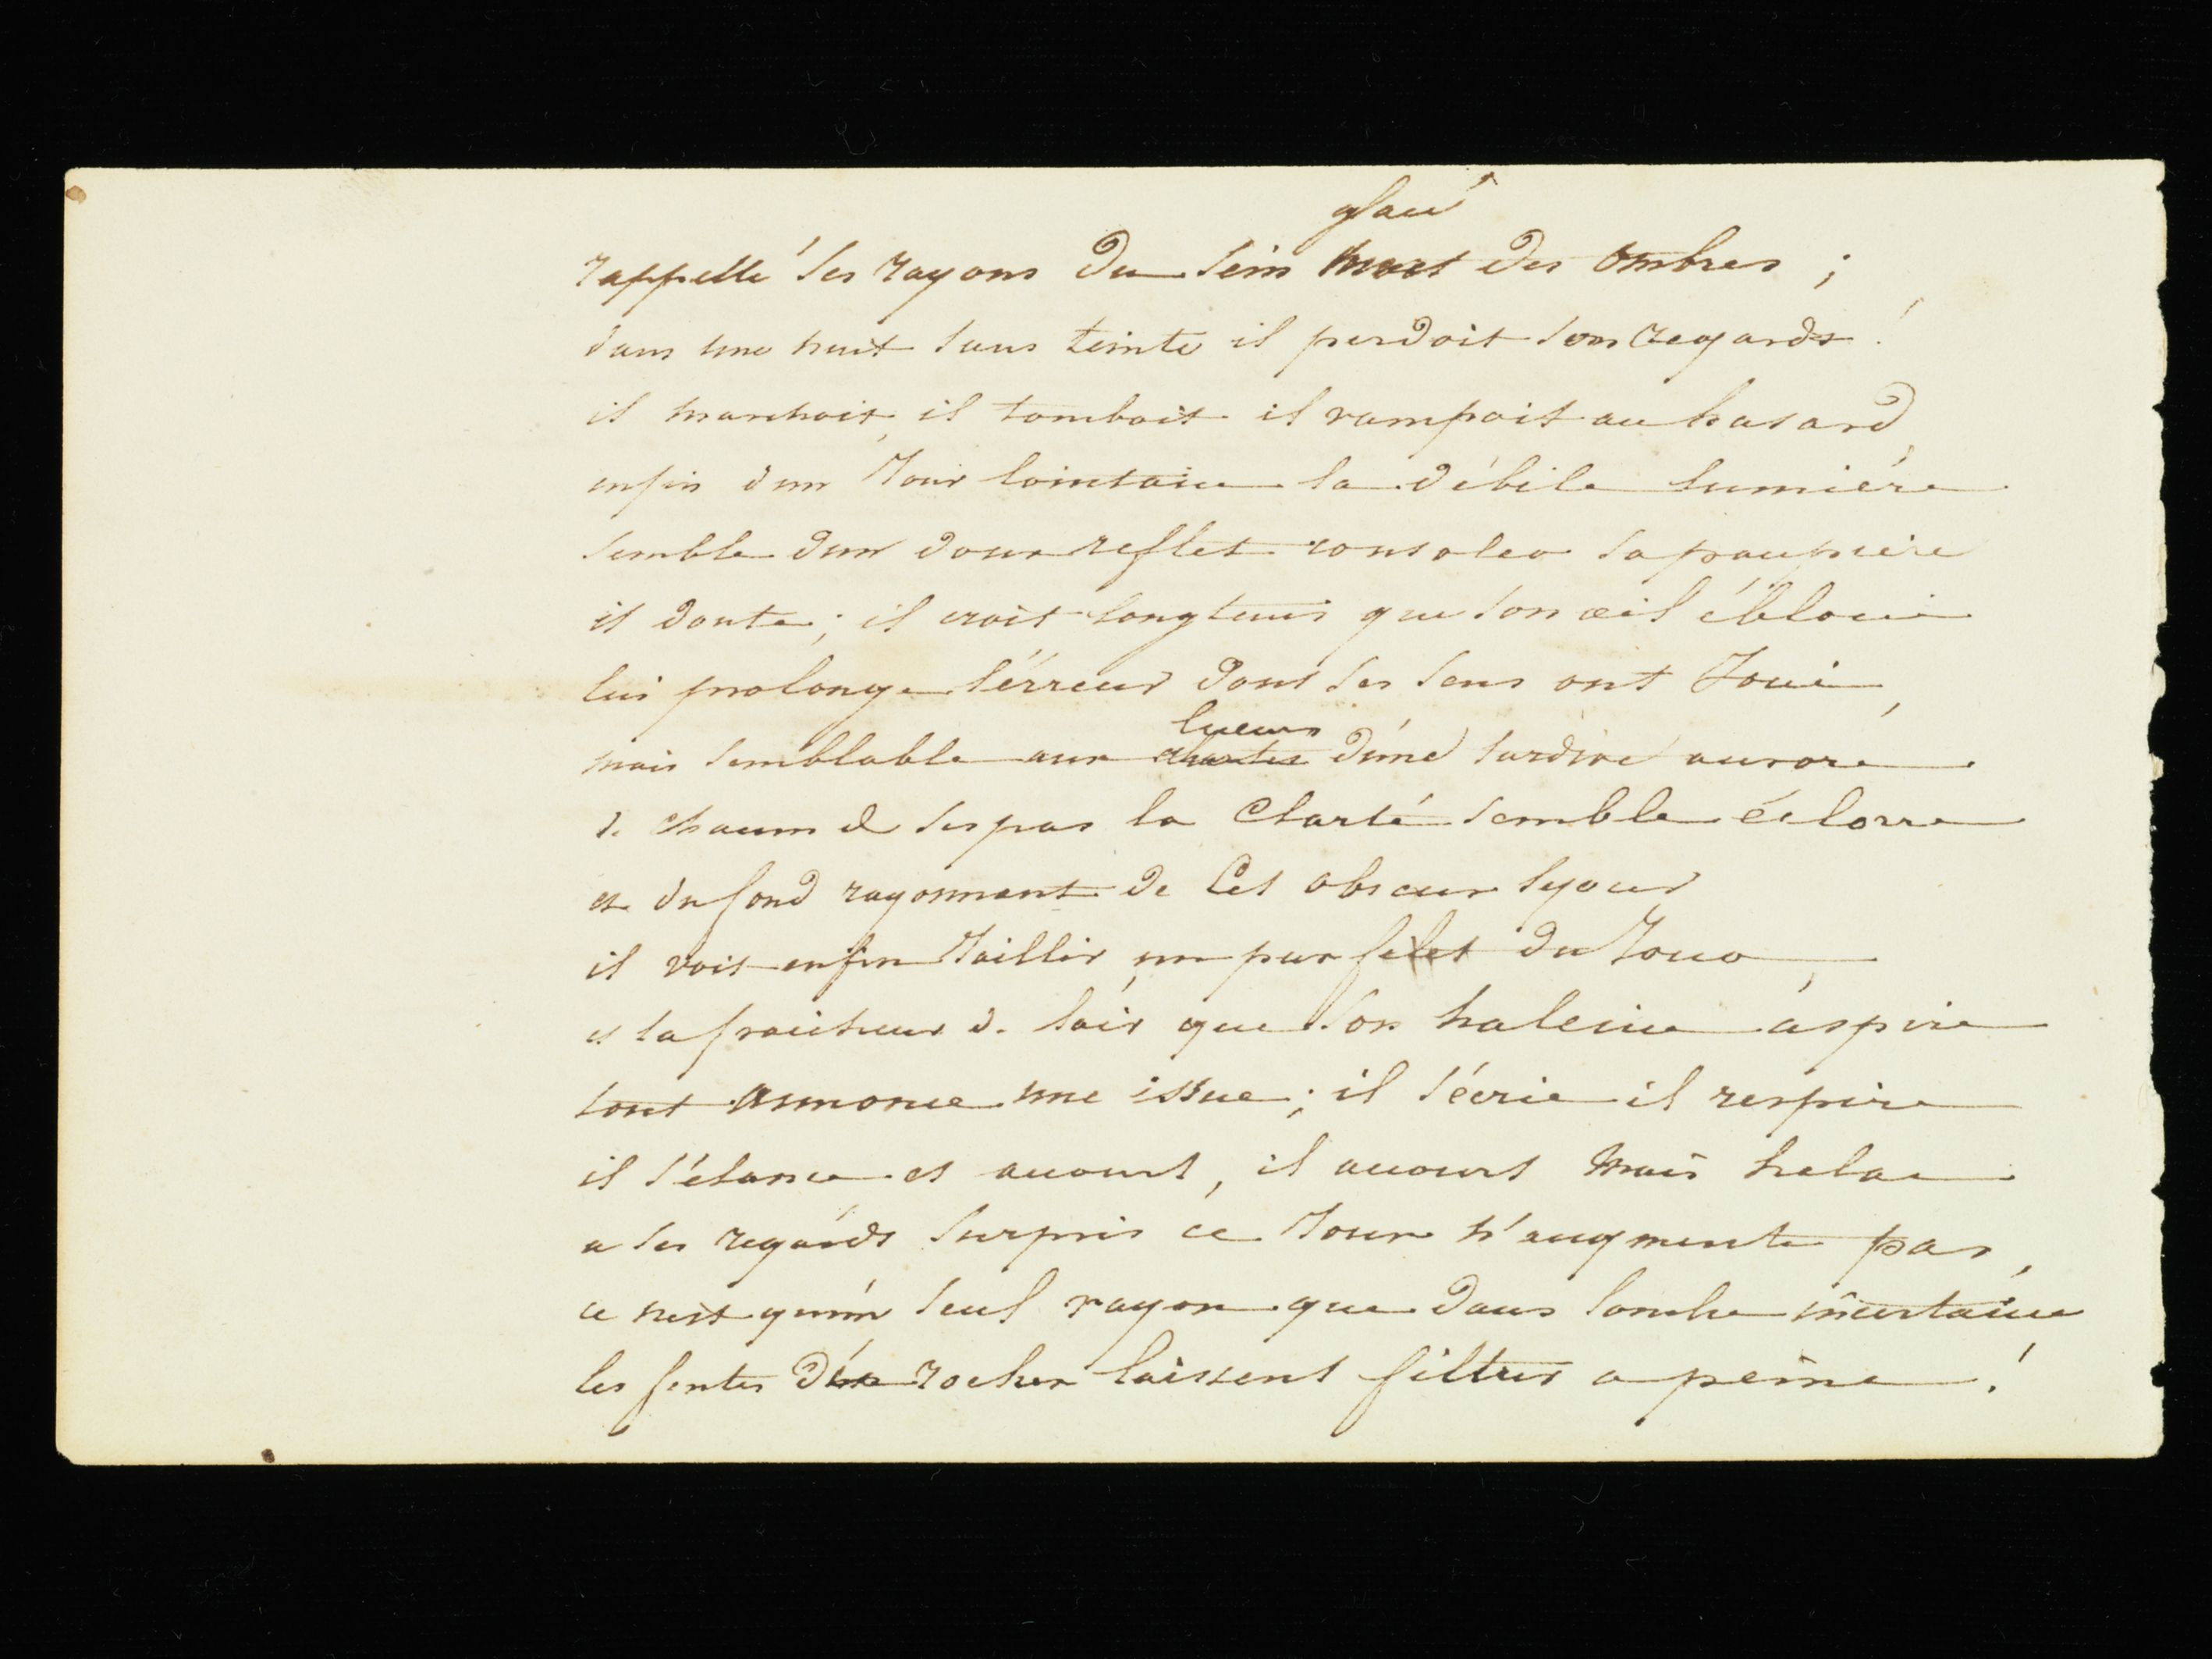 glacé
rappellé ses rayons du sein mort des ombres ;
dans une nuit sans teinte il perdoit son regards !
il marchoit, il tomboit il rampoit au hasard,
enfin d'un Jour lointain la débile lumiére
semble d'un doux reflet consoler sa paupiére
il doute ; il croit longtems que son œil ébloui
lui prolonge l'érreur dont ses sens ont Joui,
lueurs
mais semblable aux clartés d'une tardive aurore
d. chacun de ses pas la Clarté semble éclorre
et du fond rayonnant de Cet obscur séjour
il voit enfin Jaillir un pur filet du Jour,
et la fraicheur d. l'air que son haleine aspire
tout annonce une issue ; il s'écrie il respire
il s'élance et accourt, il accourt mais helas
a ses regards surpris ce Jour n'augmente pas,
ce n'est qu'un seul rayon que dans l'ombre incertaine
les fentes d'un rocher laissent filtrer a peine !